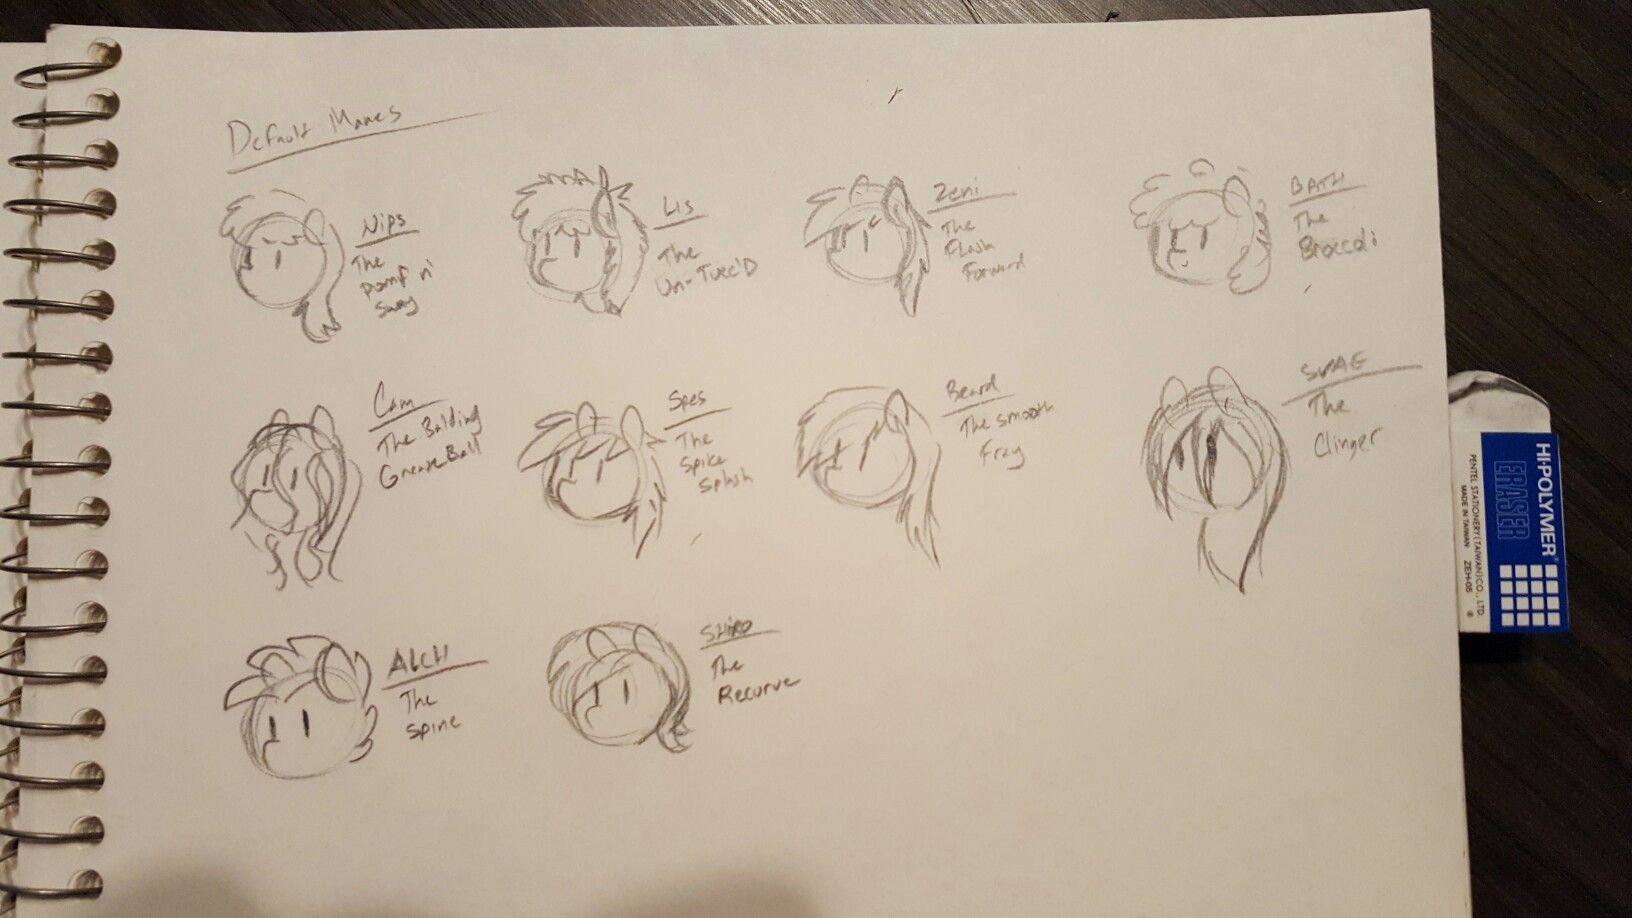 Default Manes
Nips
The
Pomf n'
Sway
Lis
The
Un-Tucc'D
Zeni
The
Flash
Forward
BATH
The
Broccoli
Cam
The Balding
Grease Ball
Spes
The
Spike
Splash
Beard
The Smooth
Fray
The
Clinger
ALCH
The
Spine
SHIRO
The
Recurve
HI-POLYMER
ERASER
PENTEL STATIONERY (TAIWAN) CO., LTD.
MADE IN TAIWAN ZEH-05